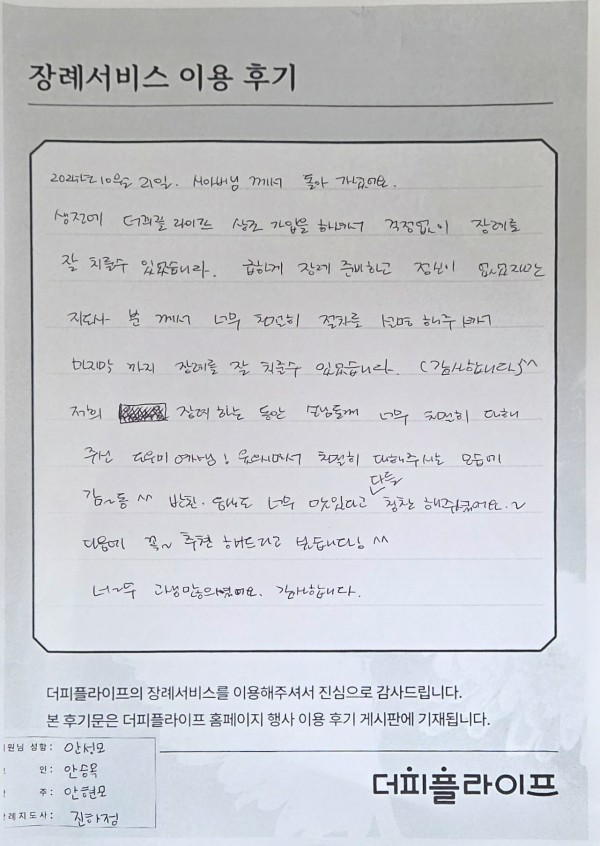 장례서비스 이용 후기
2024년 10월 21일. 시아버님 께서 돌아 가셨어요.
생전에 더피플 라이프 상조 가입을 하셔서 걱정없이 장례를
잘 치룰수 있었습니다. 급하게 장례 준비하고 정신이 없었지만
지도사 분 께서 너무 친절히 절차를 설명 해주셔서
마지막 까지 장례를 잘 치룰수 있었습니다. (감사합니다)^^
저희 장례 하는 동안 손님들께 너무 친절히 대해
주신 도우미 여사님! 웃으시면서 친절히 대해주시는 모습에
감~동 ^^ 반찬. 음식도 너무 맛있다고 다들 칭찬 해주셨어요.~
다음에 꼭~ 추천 해드리고 싶습니다! ^^
너~무 고생많으셨어요. 감사합니다.
더피플라이프의 장례서비스를 이용해주셔서 진심으로 감사드립니다.
본 후기문은 더피플라이프 홈페이지 행사 이용 후기 게시판에 기재됩니다.
원님 성함: 안성모
인: 안승옥
주: 안현모
례지도사: 진하정
더피플라이프